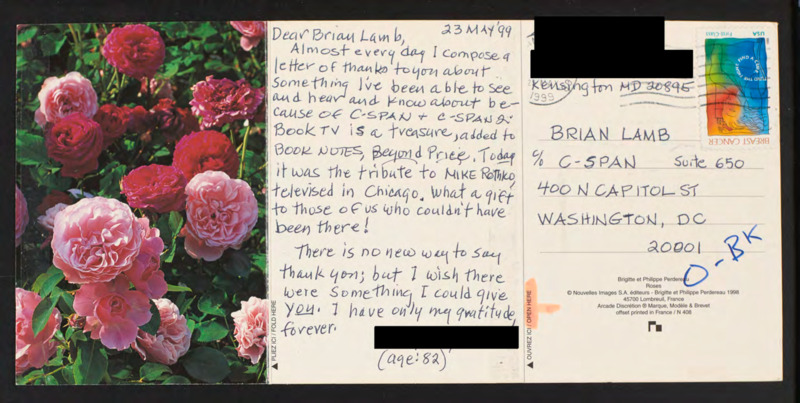 Dear Brian Lamb, 23 MAY '99
Almost every day I compose a
letter of thanks to you about
something I've been able to see
and hear and know about be-
cause OF C-SPAN + C-SPAN 2.
Book TV is a treasure, added to
BOOK NOTES, Beyond Price. Today
it was the tribute to MIKE ROYKO,
televised in Chicago. What a gift
to those of us who couldn't have
been there!
There is no new way to say
thank you; but I wish there
were something I could give
you. I have only my gratitude,
forever.
(age: 82)
◄ PLIEZ ICI / FOLD HERE
Kensington MD 20895
1999
First Class USA
BREAST CANCER
BRIAN LAMB
c/o C-SPAN Suite 650
400 N CAPITOL ST
WASHINGTON, DC
20001
O-BK
Brigitte et Philippe Perdereau
Roses
© Nouvelles Images S.A. éditeurs - Brigitte et Philippe Perdereau 1998
45700 Lombreuil, France
Arcade Discrétion ® Marque, Modèle & Brevet
offset printed in France / N 408
◄ OUVREZ ICI / OPEN HERE